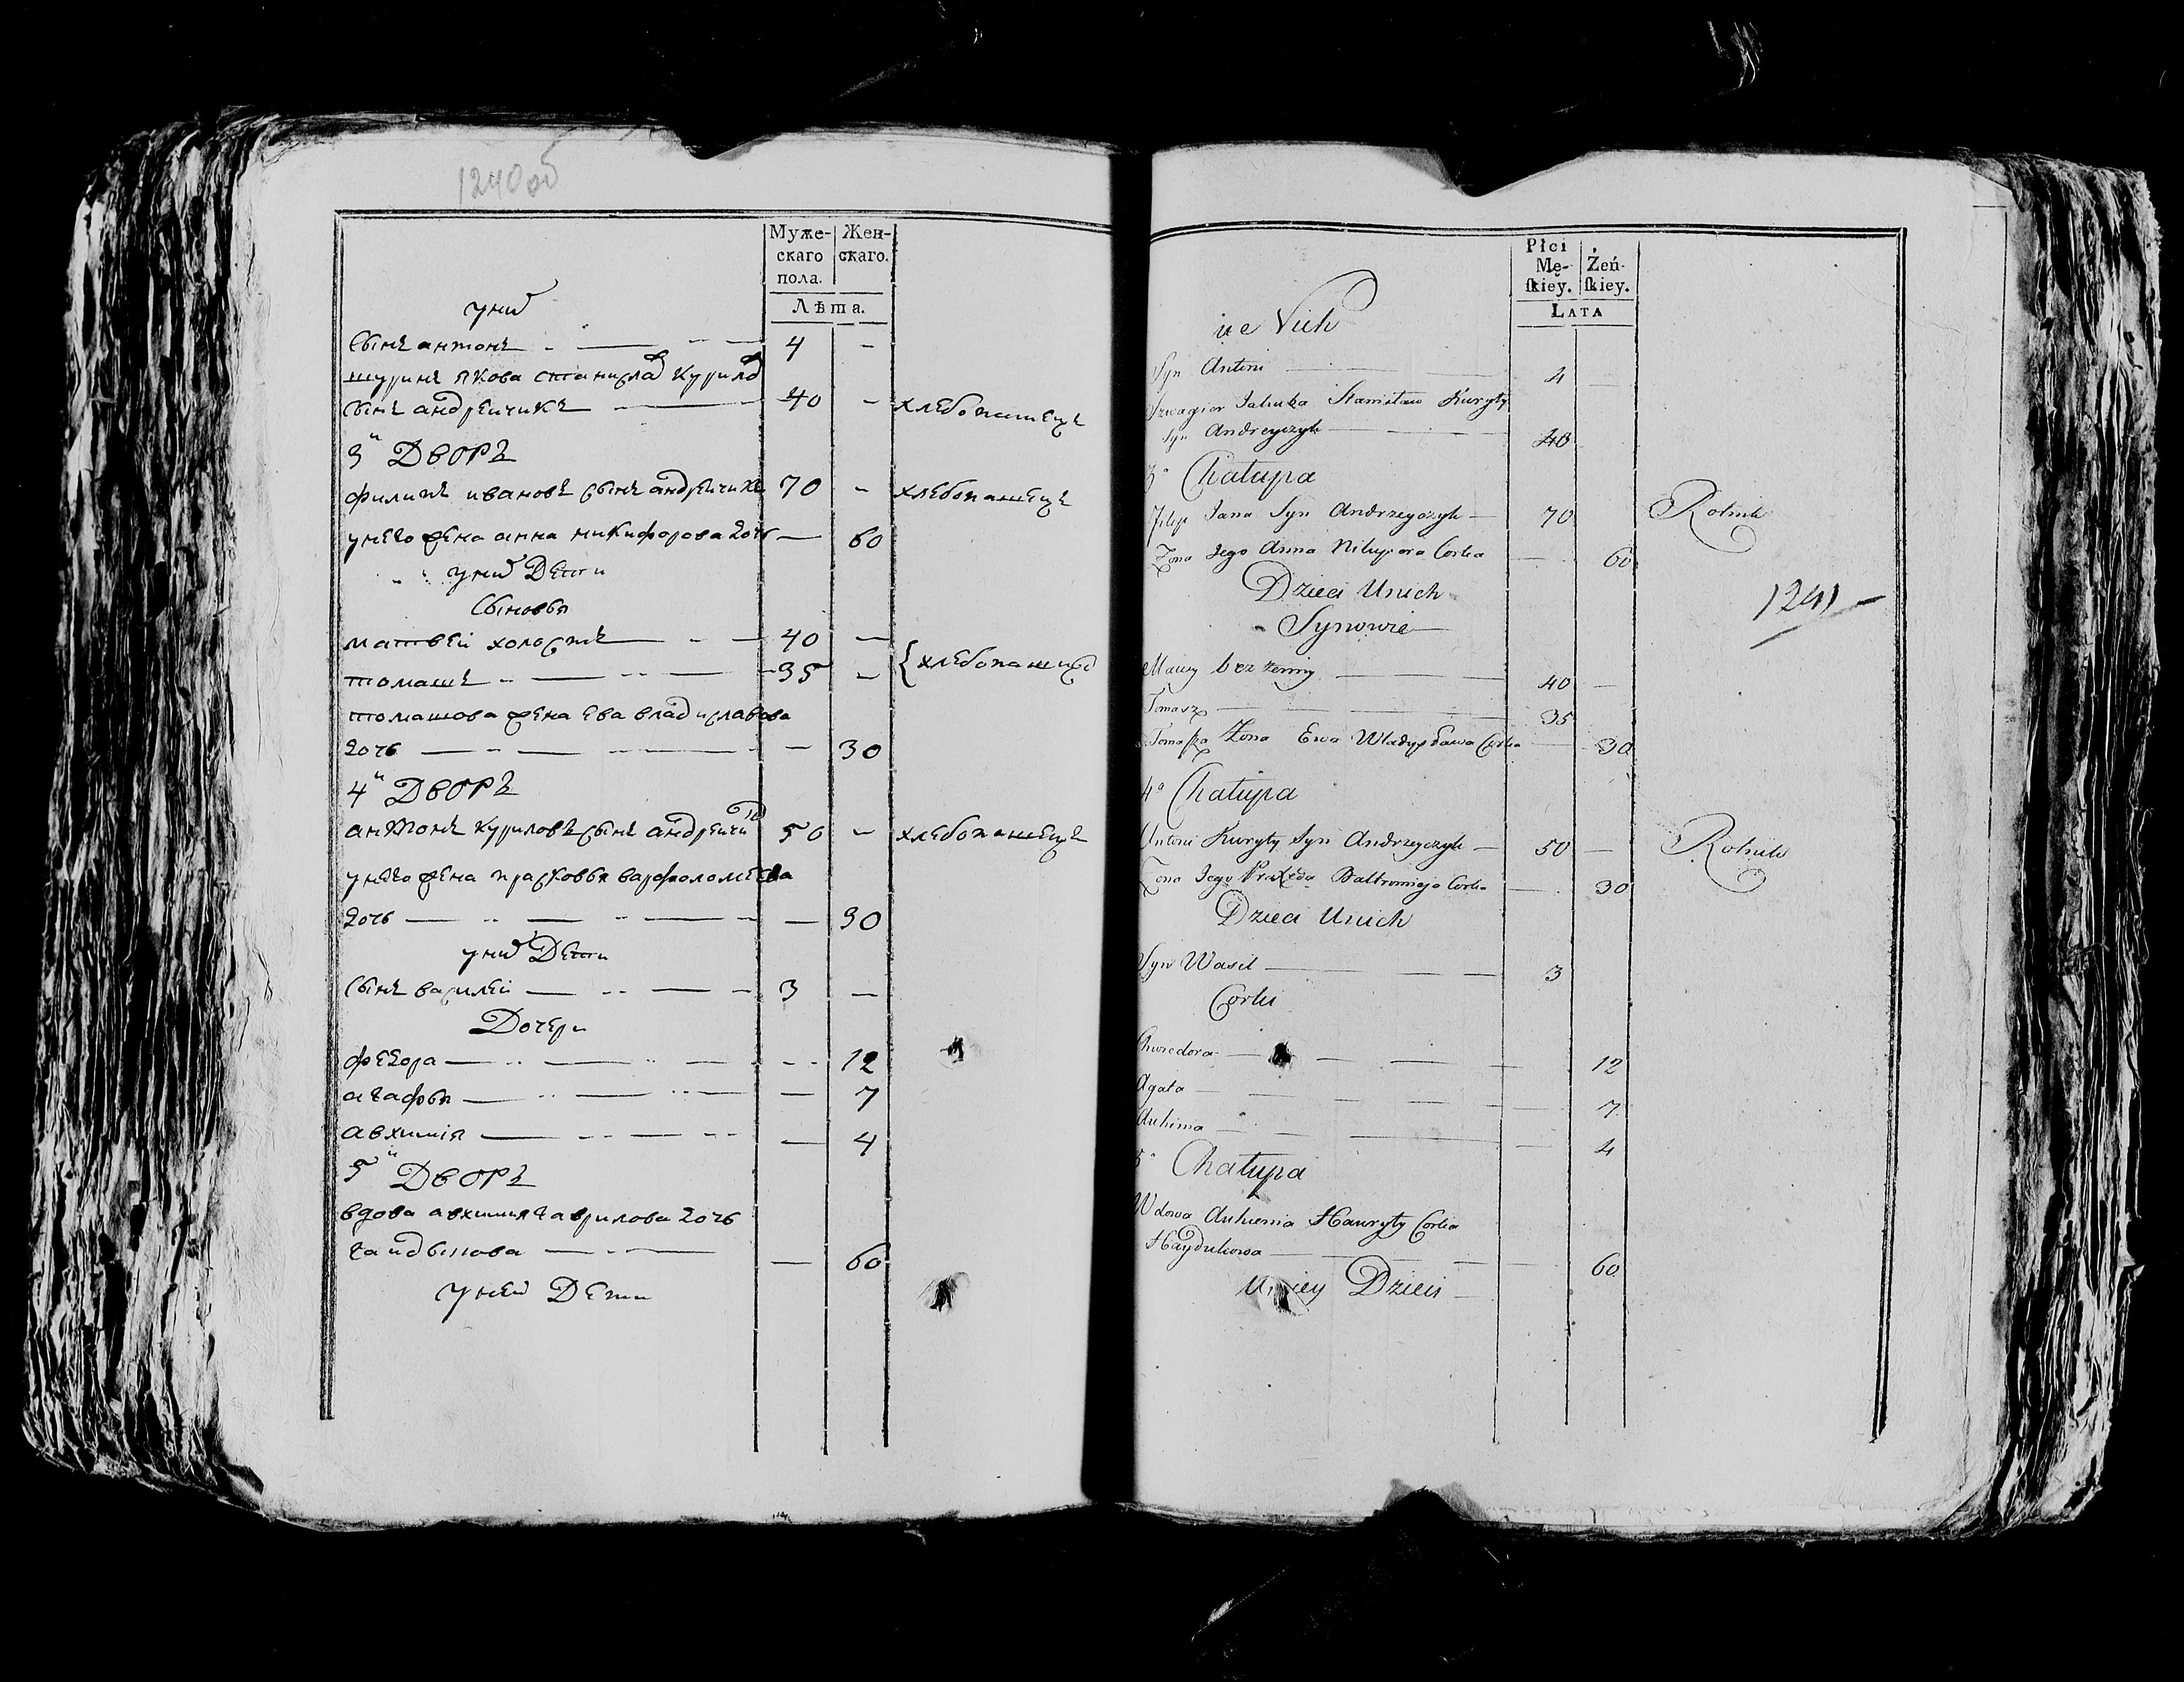 1240об
Муже-
скаго
пола.
Жен-
скаго.
Лѣта.
у них
сынъ антонъ 4 -
шуринъ якова станислав курилов
сынъ андрейчикъ 40 - хлебопашецъ
3й Дворъ
филипъ ивановъ сынъ андрейчикъ 70 - хлебопашецъ
у него жена анна никифорова дочь — 60
у них Дети
Сыновья
матвей холостъ 40 —
томашъ 35 - { хлебопашцы
томашова жена ева владиславова
дочь — 30
4й Дворъ
антонъ куриловъ сынъ андрейчик 50 - хлебопашецъ
у него жена прасковья варфоломеева
дочь — 30
у них Дети
сынъ василей 3 —
Дочери
федора 12
агафья — 7
авхимія — 4
5й Дворъ
вдова авхимия гаврилова дочь
гайдукова — 60
у ней Дети
Płci
Mę-
ſkiéy.
Żeń-
ſkiey.
LATA
u Nich
Syn Antoni 4 —
Szwagier Jakuba Stanisław Kuryły
Syn Andreyczyk 40
3a Chałupa
Filip Jana Syn Andrzeyczyk 70 Rolnik
Żona Jego Anna Nikypora Corka — 60
Dzieci Unich
Synowie
1241
Maciey bez żenny 40 —
Tomasz 35
Tomaſza Żona Ewa Władysława Corka — 30
4a Chałupa
Antoni Kuryły Syn Andrzeyczyk 50 — Rolnik
Żona Jego Praxeda Bałtromieja Corka — 30
Dzieci Unich
Syn Wasil 3
Corki
Chwedora 12
Agata — 7
Auhimia — 4
5a Chałupa
Wdowa Auhimia Hawryły Corka
Haydukowa — 60
Uniey Dzieci